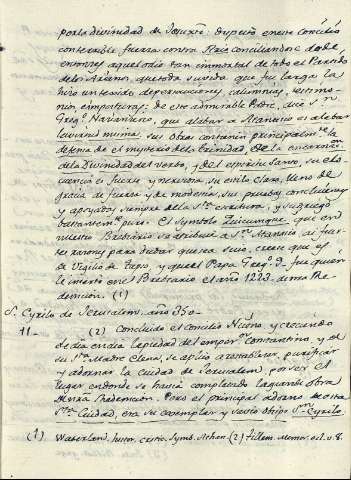 por la divinidad de Jesuxto: disputó en este Concilio
con terrible fuerza contra Arrio conciliandose desde
entonces aquel odio tan immortal de todo el Partido
de los Arrianos, que toda su vida que fué larga la
hizo un texido de persecuciones, calumnias, testimo-
nios e imposturas: de este admirable Padre, dice Sn
Gregº Nazianzeno, que alabar a Atanasio es alabar
la virtud misma: sus Obras contienen principalmte la
defensa de el mysterio de la Trinidad, de la encarnacion
de la Divinidad del Verbo, y del Espiritu Santo, su elo-
cuencia es fuerte y nerviosa, su estilo claro, lleno de
gracia de fuerza y de modestia, sus pruebas concluyentes
y apoyadas siempre de la Sta escritura, y su griego
bastantemte puro. El Symbolo Quicumque que en
nuestro Breviario se atribuie a Sn Atanasio ai fuer-
tes razones para dudar que sea suio, creese que es
de Vigilio de Tapso, y que el Papa Gregº 9º fue quien
le inserto en el Breviario el año 1223 de nra Re-
dempcion. (1)
S. Cyrilo de Jerusalem. año 350-
11- (2) Concluido el Concilio Niceno, y creciendo
de dia en dia la piedad del emperor Constantino, y el
su Sta Madre Elena, se aplicó a restablecer, purificar
y adornar la ciudad de Jerusalem por ser el
lugar en donde se havia completado la grande obra
de nra Redempcion. Pero el principal adorno de esta
Sta Ciudad, era su exemplar y savio obispo Sn Cyrilo
(1) Waterland, histor. critic. Symb. Athan. (2) Tillem. Memor. ecl. v. 8.